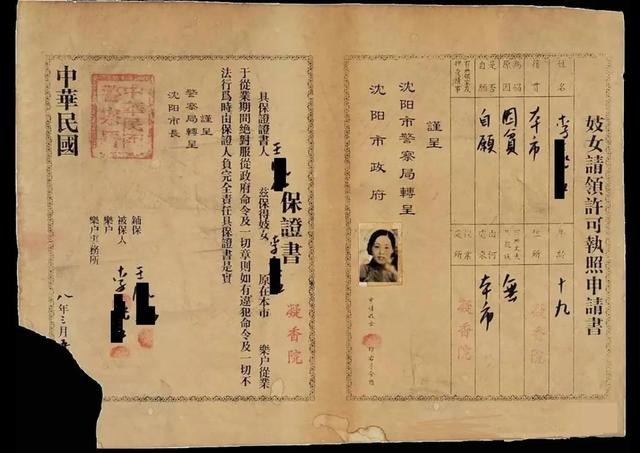 妓女請領許可執照申請書
姓名 李
年齡 十九
籍貫 本市
住所 凝香院
為娼原因 因貧
無
是否自願 自願
由何處來 本市
凝香院
謹呈
沈阳市警察局轉呈
沈阳市政府
保證書
具保證證書人 王
茲保得妓女 李 原在本市 凝香院 樂户從業
于從業期間絶對服從政府命令及一切章則如有違犯命令及一切不
法行爲時由保證人負完全責任具保證書是實
謹呈
警察局轉呈
沈阳市長
鋪保 王
被保人 李
樂户
樂户事務所
中華民國
八年三月